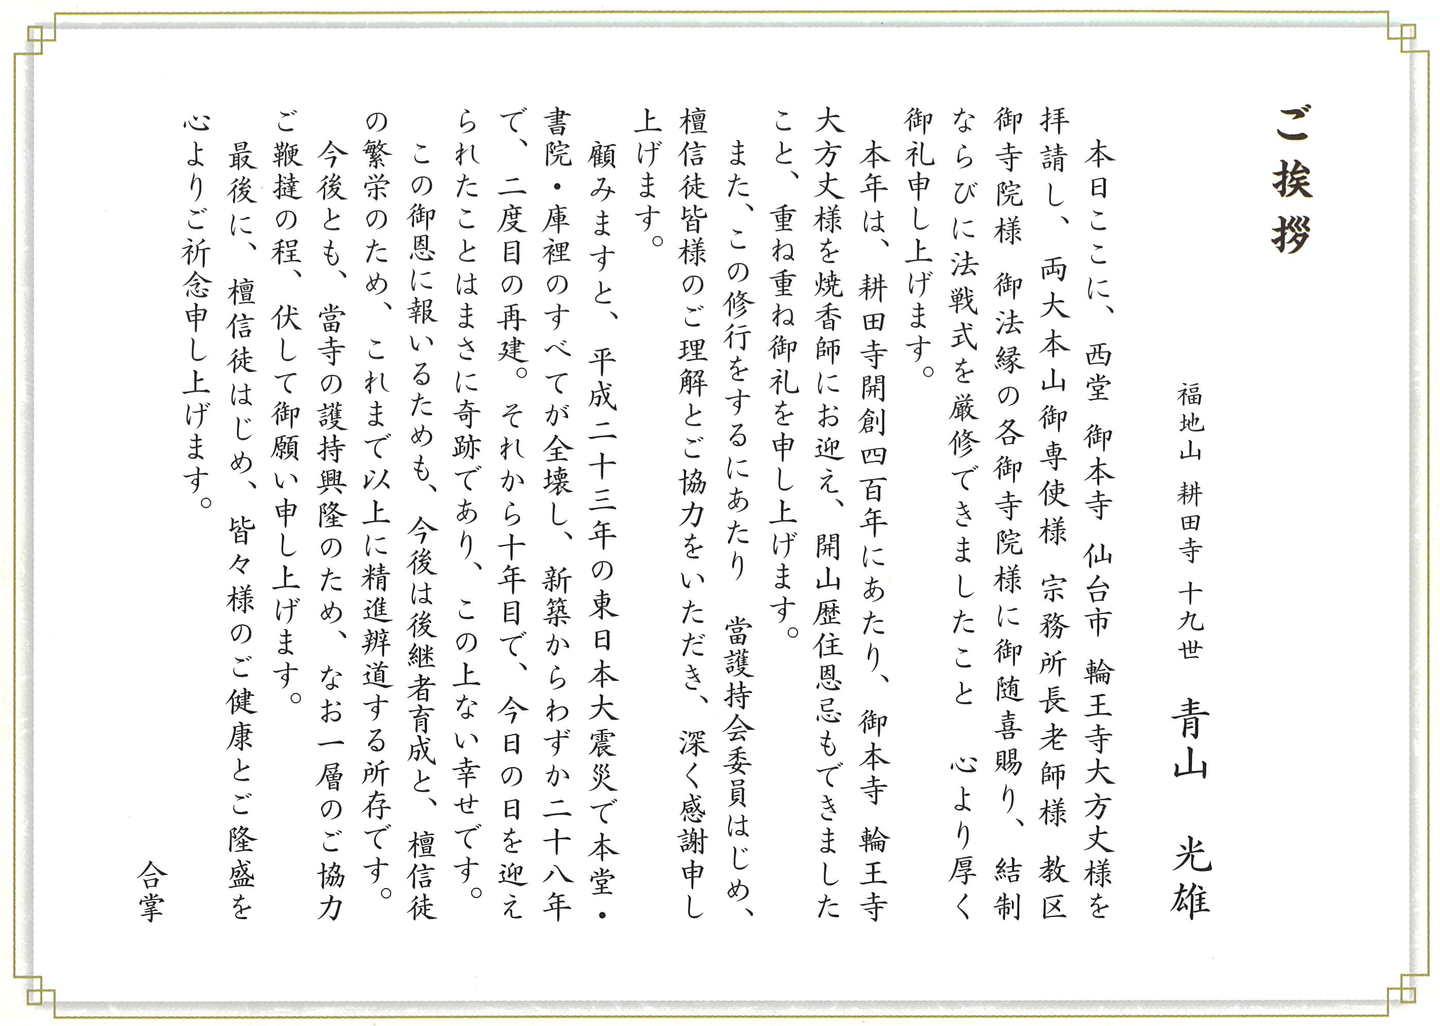 ご挨拶
福地山 耕田寺 十九世 青山 光雄
本日ここに、西堂 御本寺 仙台市 輪王寺大方丈様を
拝請し、両大本山御専使様 宗務所長老師様 教区
御寺院様 御法縁の各御寺院様に御随喜賜り、結制
ならびに法戦式を厳修できましたこと 心より厚く
御礼申し上げます。
本年は、耕田寺開創四百年にあたり、御本寺 輪王寺
大方丈様を焼香師にお迎え、開山歴住恩忌もできました
こと、重ね重ね御礼を申し上げます。
また、この修行をするにあたり 當護持会委員はじめ、
檀信徒皆様のご理解とご協力をいただき、深く感謝申し
上げます。
顧みますと、平成二十三年の東日本大震災で本堂・
書院・庫裡のすべてが全壊し、新築からわずか二十八年
で、二度目の再建。それから十年目で、今日の日を迎え
られたことはまさに奇跡であり、この上ない幸せです。
この御恩に報いるためも、今後は後継者育成と、檀信徒
の繁栄のため、これまで以上に精進辨道する所存です。
今後とも、當寺の護持興隆のため、なお一層のご協力
ご鞭撻の程、伏して御願い申し上げます。
最後に、檀信徒はじめ、皆々様のご健康とご隆盛を
心よりご祈念申し上げます。
合掌